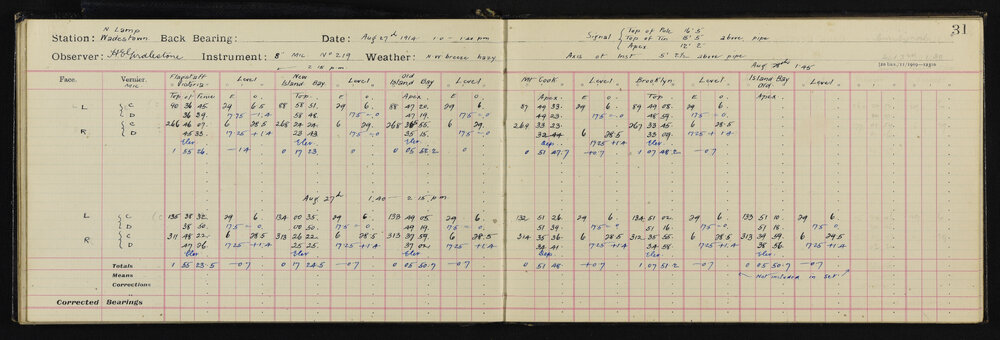 N Lamp
Station: Wadestown Back Bearing: Date: Aug 27th 1914 1.0 – 1.20 pm
Signal { Top of Pole 16' 5"
Top of Tin 15' 5" above pipe
Apex 12' 2"
31
Observer: Instrument: 8" Mic No 219 Weather: N W breeze hazy
Axis of Inst 5' 2½ above pipe
2 15 pm
Aug 1.45
[20 bks./11/1909—12516
Face. Vernier. Mic Flagstaff Victoria Level New Island Bay Level Old Island Bay Level Mt Cook Level Brooklyn Level Island Bay Old Level
Top of Fence E O. Top. E O Apex. E O. Apex. E O. Top E O Apex.
L C 40 36 45 29 6.5 88 58 51. 29 6. 88 47 20. 29 6. 87 49 33. 29 6. 89 49 08. 29 6.
D 36 39. 17.5 –1.4 58 48. 17.5 – .0 47 19. 17.5 – .0 49 23. 17.5 – .0 48 59. 17.5 – .0
R C 266 46 07. 6 28.5 268 24 24. 6 29. 268 36 55. 6 29. 269 33 23. 267 33 45. 6 28.5
D 45 33. 17.25 +1.4 23 43. 17.5 – .0 35 15. 17.5 – .0 32 44 6 28.5 33 09. 17.25 +1.4
Elev Elev. Elev. Dep 17.25 +1.4 Elev
1 55 26. –1.4 0 17 23. 0 0 05 52.2 0 0 51 47.7 +0.7 1 07 48.2 –0.7
Aug 27th 1.40 — 2 15 pm
L C 135 38 32. 29 6. 134 00 35. 29 6. 133 49 05 29 6. 132 51 26. 29 6. 134 51 02. 29 6. 133 51 10. 29 6.
D 38 50. 17.5 – 0. 00 50. 17.5 – 0. 49 19. 17.5 – 0. 51 39. 17.5 – 0 51 16. 17.5 – 0. 51 18. 17.5 – 0.
R C 311 48 22. 6 28.5 313 26 22. 6 28.5 313 37 59. 6 28.5 314 35 36. 6 28.5 312 35 35. 6 28.5 313 39 39. 6 29.5
D 47 26. 17.25 +1.4 25 25. 17.25 +1.4 37 02. 17.25 +1.4 34 41. 17.25 +1.4 34 38. 17.25 +1.4 38 36. 17.25 +1.4
Elev Elev. Elev. Dep Elev. Elev
Totals 1 55 23.5 –0.7 0 17 24.5 –0.7 0 05 50.7 –0.7 0 51 48. +0.7 1 07 51.2 –0.7 0 05 50.7 –0.7
Means Not included in set
Corrections
Corrected Bearings